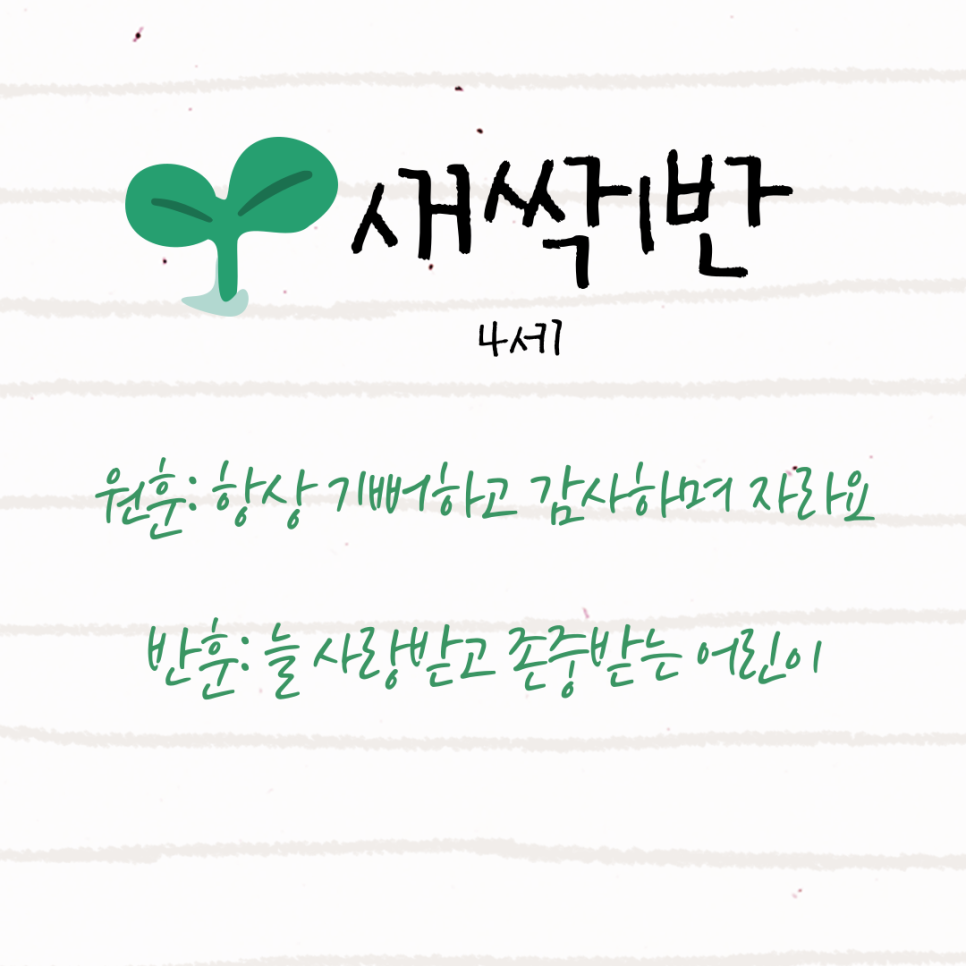 새싹1반
4세
원훈: 항상 기뻐하고 감사하며 자라요
반훈: 늘 사랑받고 존중받는 어린이